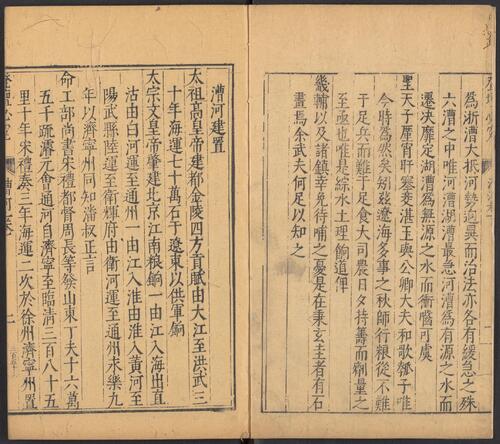 為浙漕大抵河勢迥異而治法亦各有緩急之殊
六漕之中唯河漕湖漕最急河漕為有源之水而
遷決靡定湖漕為無源之水而衝囓可虞
聖天子厪宵旰蹇茭湛玉與公卿大夫和歌瓠子唯
今時為然矣矧茲遼海多事之秋師行粮從不難
于足兵而難于足食大司農日夕持籌而劑量之
至亟也唯是綜水土理餉道俾
畿輔以及諸鎮幸免待哺之憂是在秉玄圭者有石
畫焉余武夫何足以知之
漕河建置
太祖高皇帝建都金陵四方貢賦由大江至洪武三
十年海運七十萬石于遼東以供軍餉
太宗文皇帝肇建北京江南粮餉一由江入海出直
沽由白河運至通州一由江入淮由淮入黃河至
陽武縣陸運至衛輝府由衛河運至通州永樂九
年以濟寧州同知潘叔正言
命工部尚書宋禮都督周長等發山東丁夫十六萬
五千疏濬元會通河自濟寧至臨清三百八十五
里十年宋禮奏三年海運二次於徐州濟寧州置
漕河
一